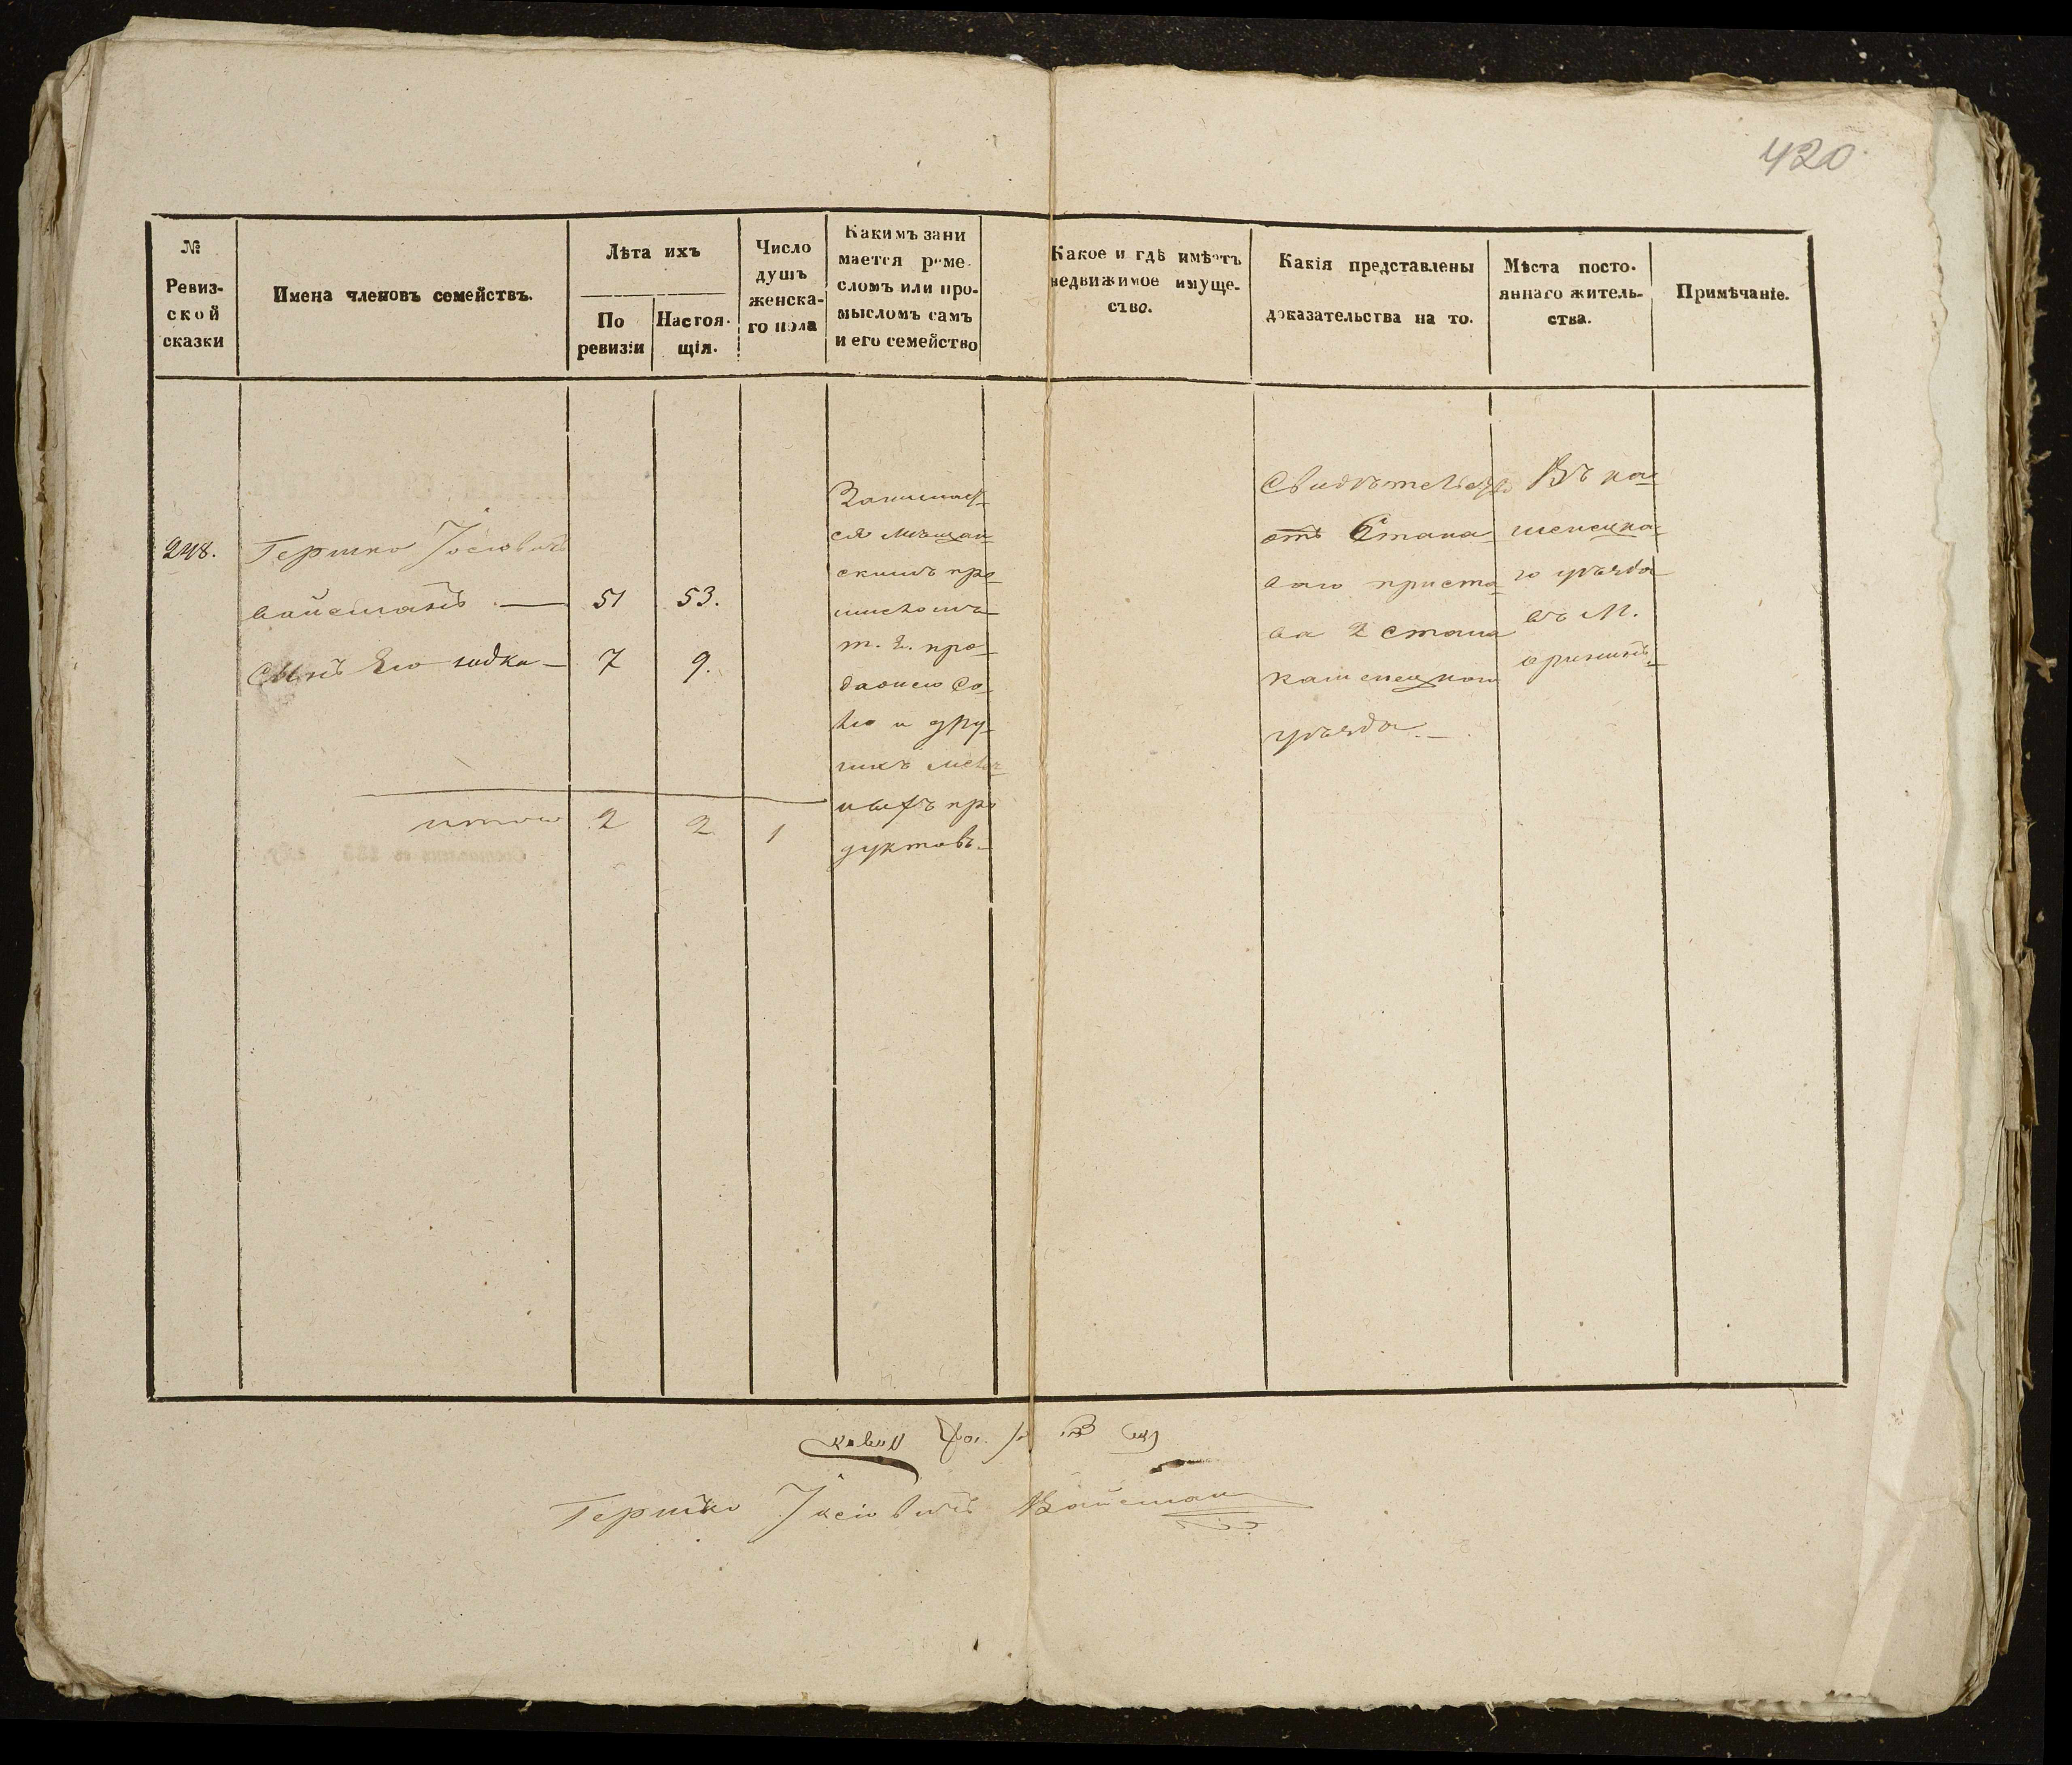 420
№
Ревиз-
ской
сказки
Имена членовъ семействъ.
Лѣта ихъ
По
ревизіи
Настоя-
щія.
Число
душъ
женска-
го пола
Какимъ зани
мается реме-
сломъ или про-
мысломъ самъ
и его семейство
Какое и гдѣ имѣетъ
недвижимое имуще-
ство.
Какія представлены
доказательства на то.
Мѣста посто-
яннаго житель-
ства.
Примѣчаніе.
248.
Гершко Іосіовичъ
вайсманъ — 51 53.
Сынъ Его — 7 9.
итого 2 2 1
Занимает-
ся мѣщан-
скимъ про-
мисломъ
т. е. про-
даскою со-
лю и дру-
гихъ мелоч-
ныхъ про
дуктовъ.
Свидѣтельство
отъ Стана-
ваго приста-
ва 2 стана
каменецкаго
уѣзда. —
Въ ка-
менецка-
го уѣзда
въ М.
орининѣ
Гершко Іосіовичъ Вайсман